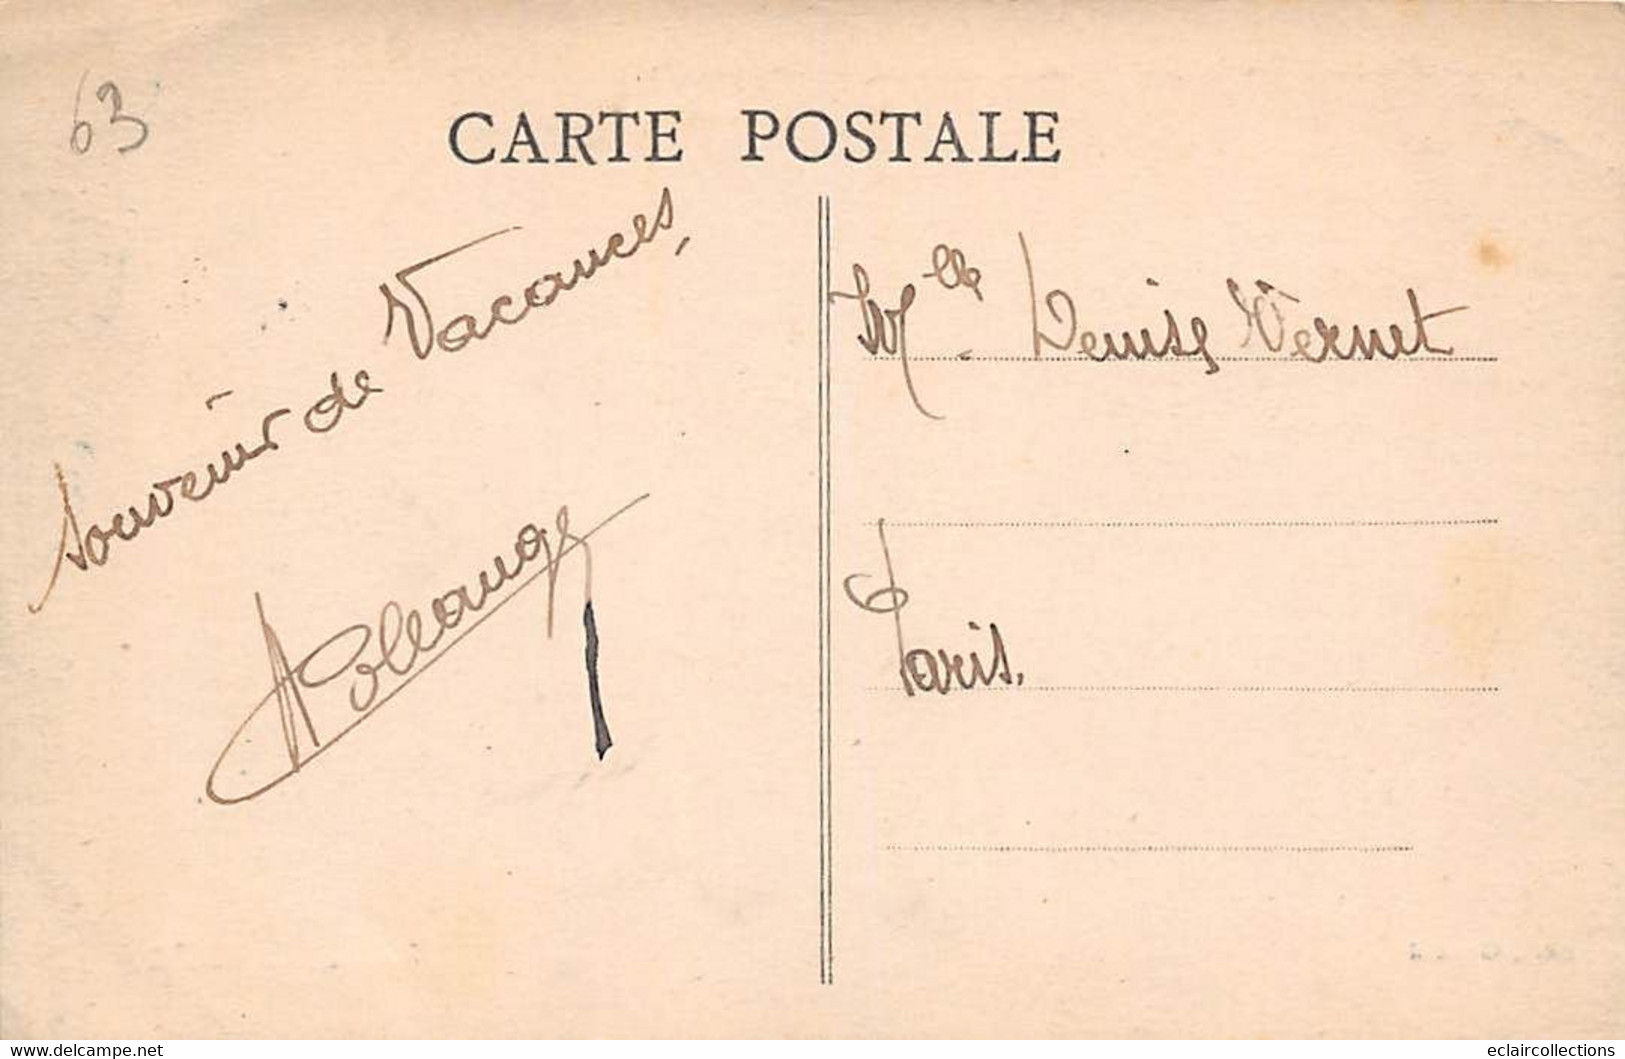 63
CARTE POSTALE
Souvenir de Vacances,
Mlle. Denise Vernet
Paris.
www.delcampe.net
eclaircollections